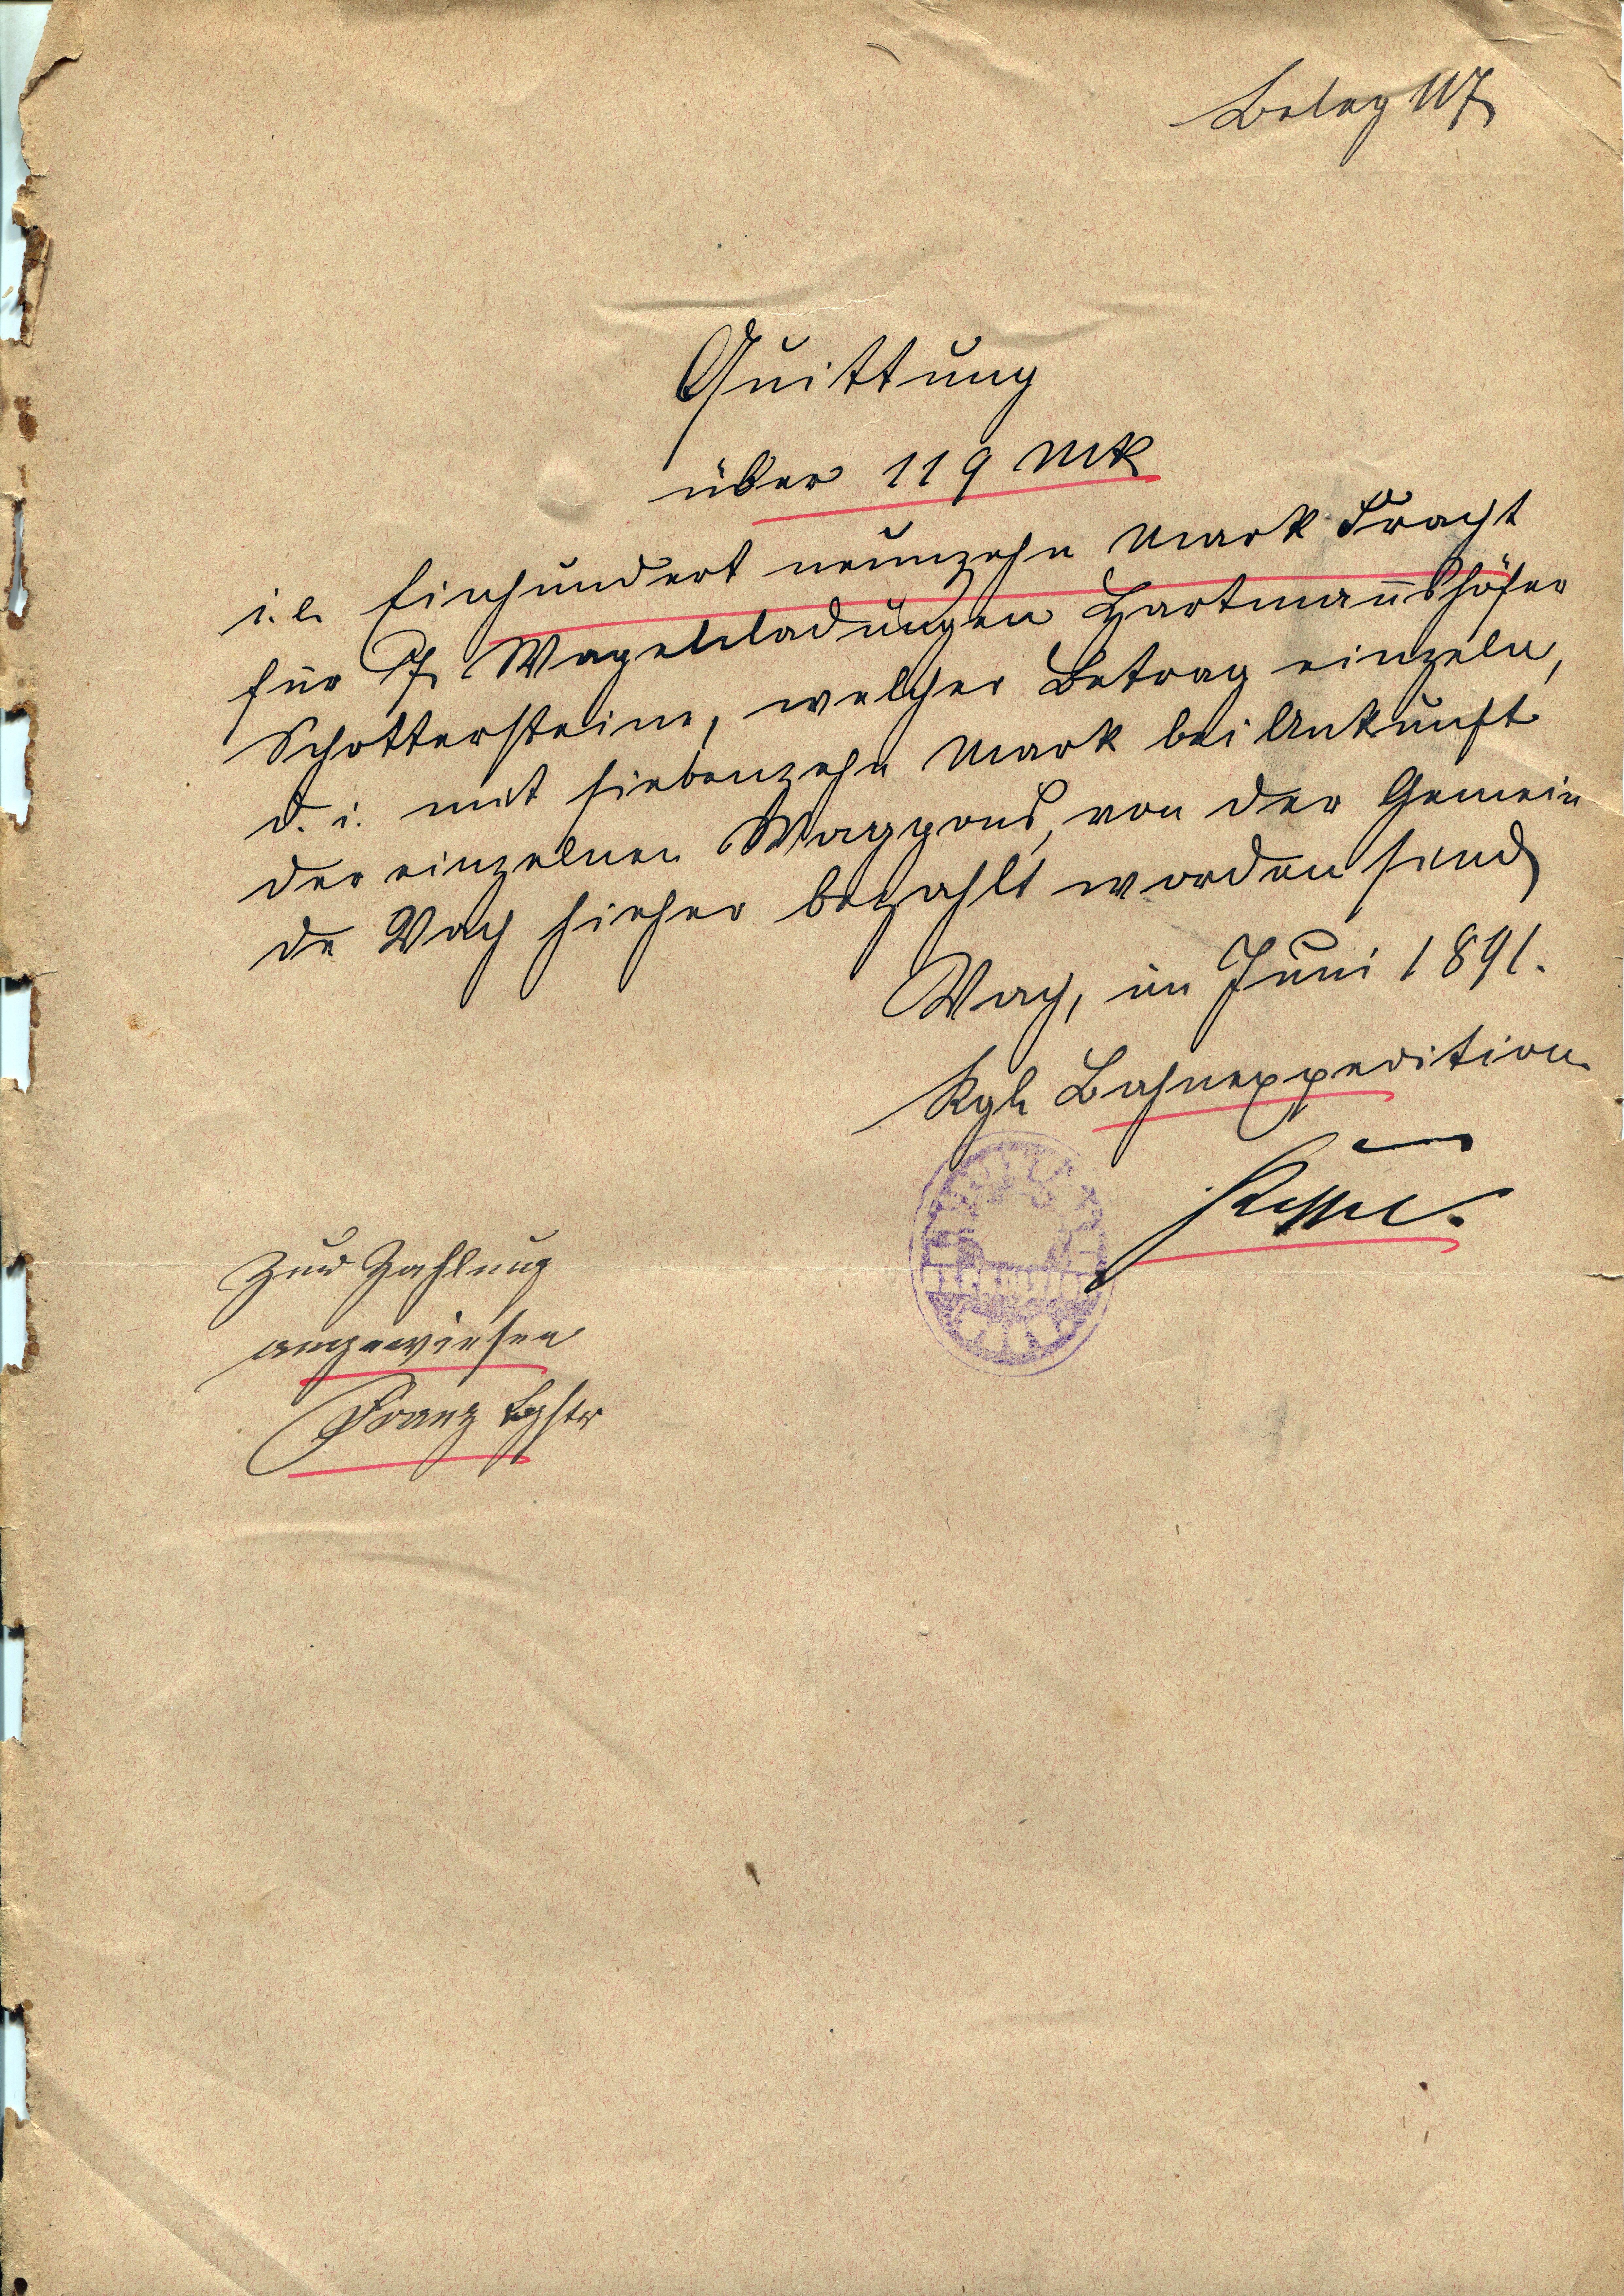 Beleg 117
Quittung
über 119 Mk
i. e. Einhundert neunzehn Mark Fracht
für 7 Wagenladungen Hartmannshöfer
Schottersteine, welcher Betrag einzeln,
d. i. mit siebenzehn Mark bei Ankunft
der einzelnen Waggons, von der Gemein
de Vach hieher bezahlt worden sind
Vach, im Juni 1891.
Kgl Bahnexpedition
Zur Zahlung
angewiesen
Franz Bgstr